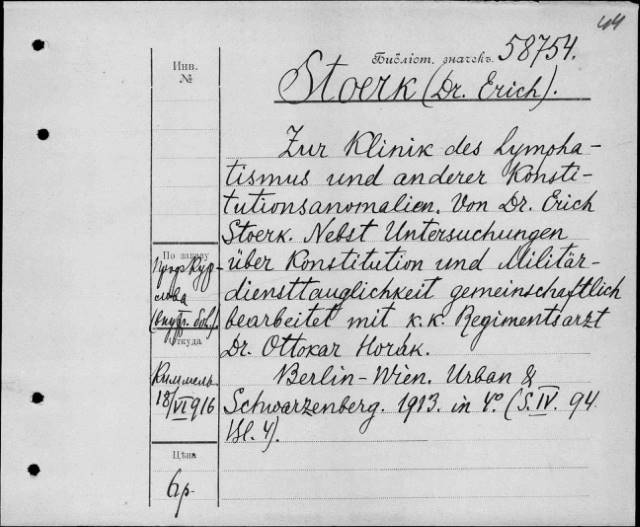 44
Библіот. значекъ 58754.
Инв.
№
Stoerk (Dr. Erich).
Zur Klinik des Lympha-
tismus und anderer Konsti-
tutionsanomalien. Von Dr. Erich
Stoerk. Nebst Untersuchungen
über Konstitution und Militär-
diensttauglichkeit gemeinschaftlich
bearbeitet mit k. k. Regimentsarzt
Dr. Ottokar Horák.
Berlin-Wien. Urban &
Schwarzenberg. 1913. in 4° (S. IV. 94
Bl. 4).
По заказу
Проф Кур-
лова
(внутр. бол.)
Откуда
Киммель.
18/VI 916
Цѣна
6 р.